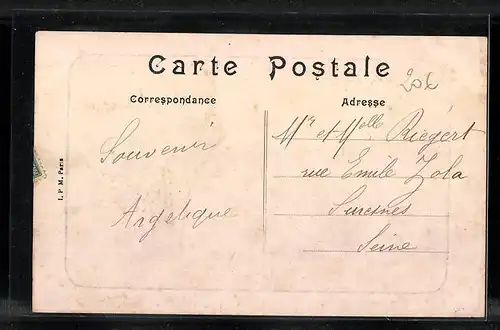 Carte Postale
20€
Correspondance
Adresse
Souvenir
Argelique
Mr et Melle Riegert
rue Emile Zola
Suresnes
Seine
I. P. M. Paris